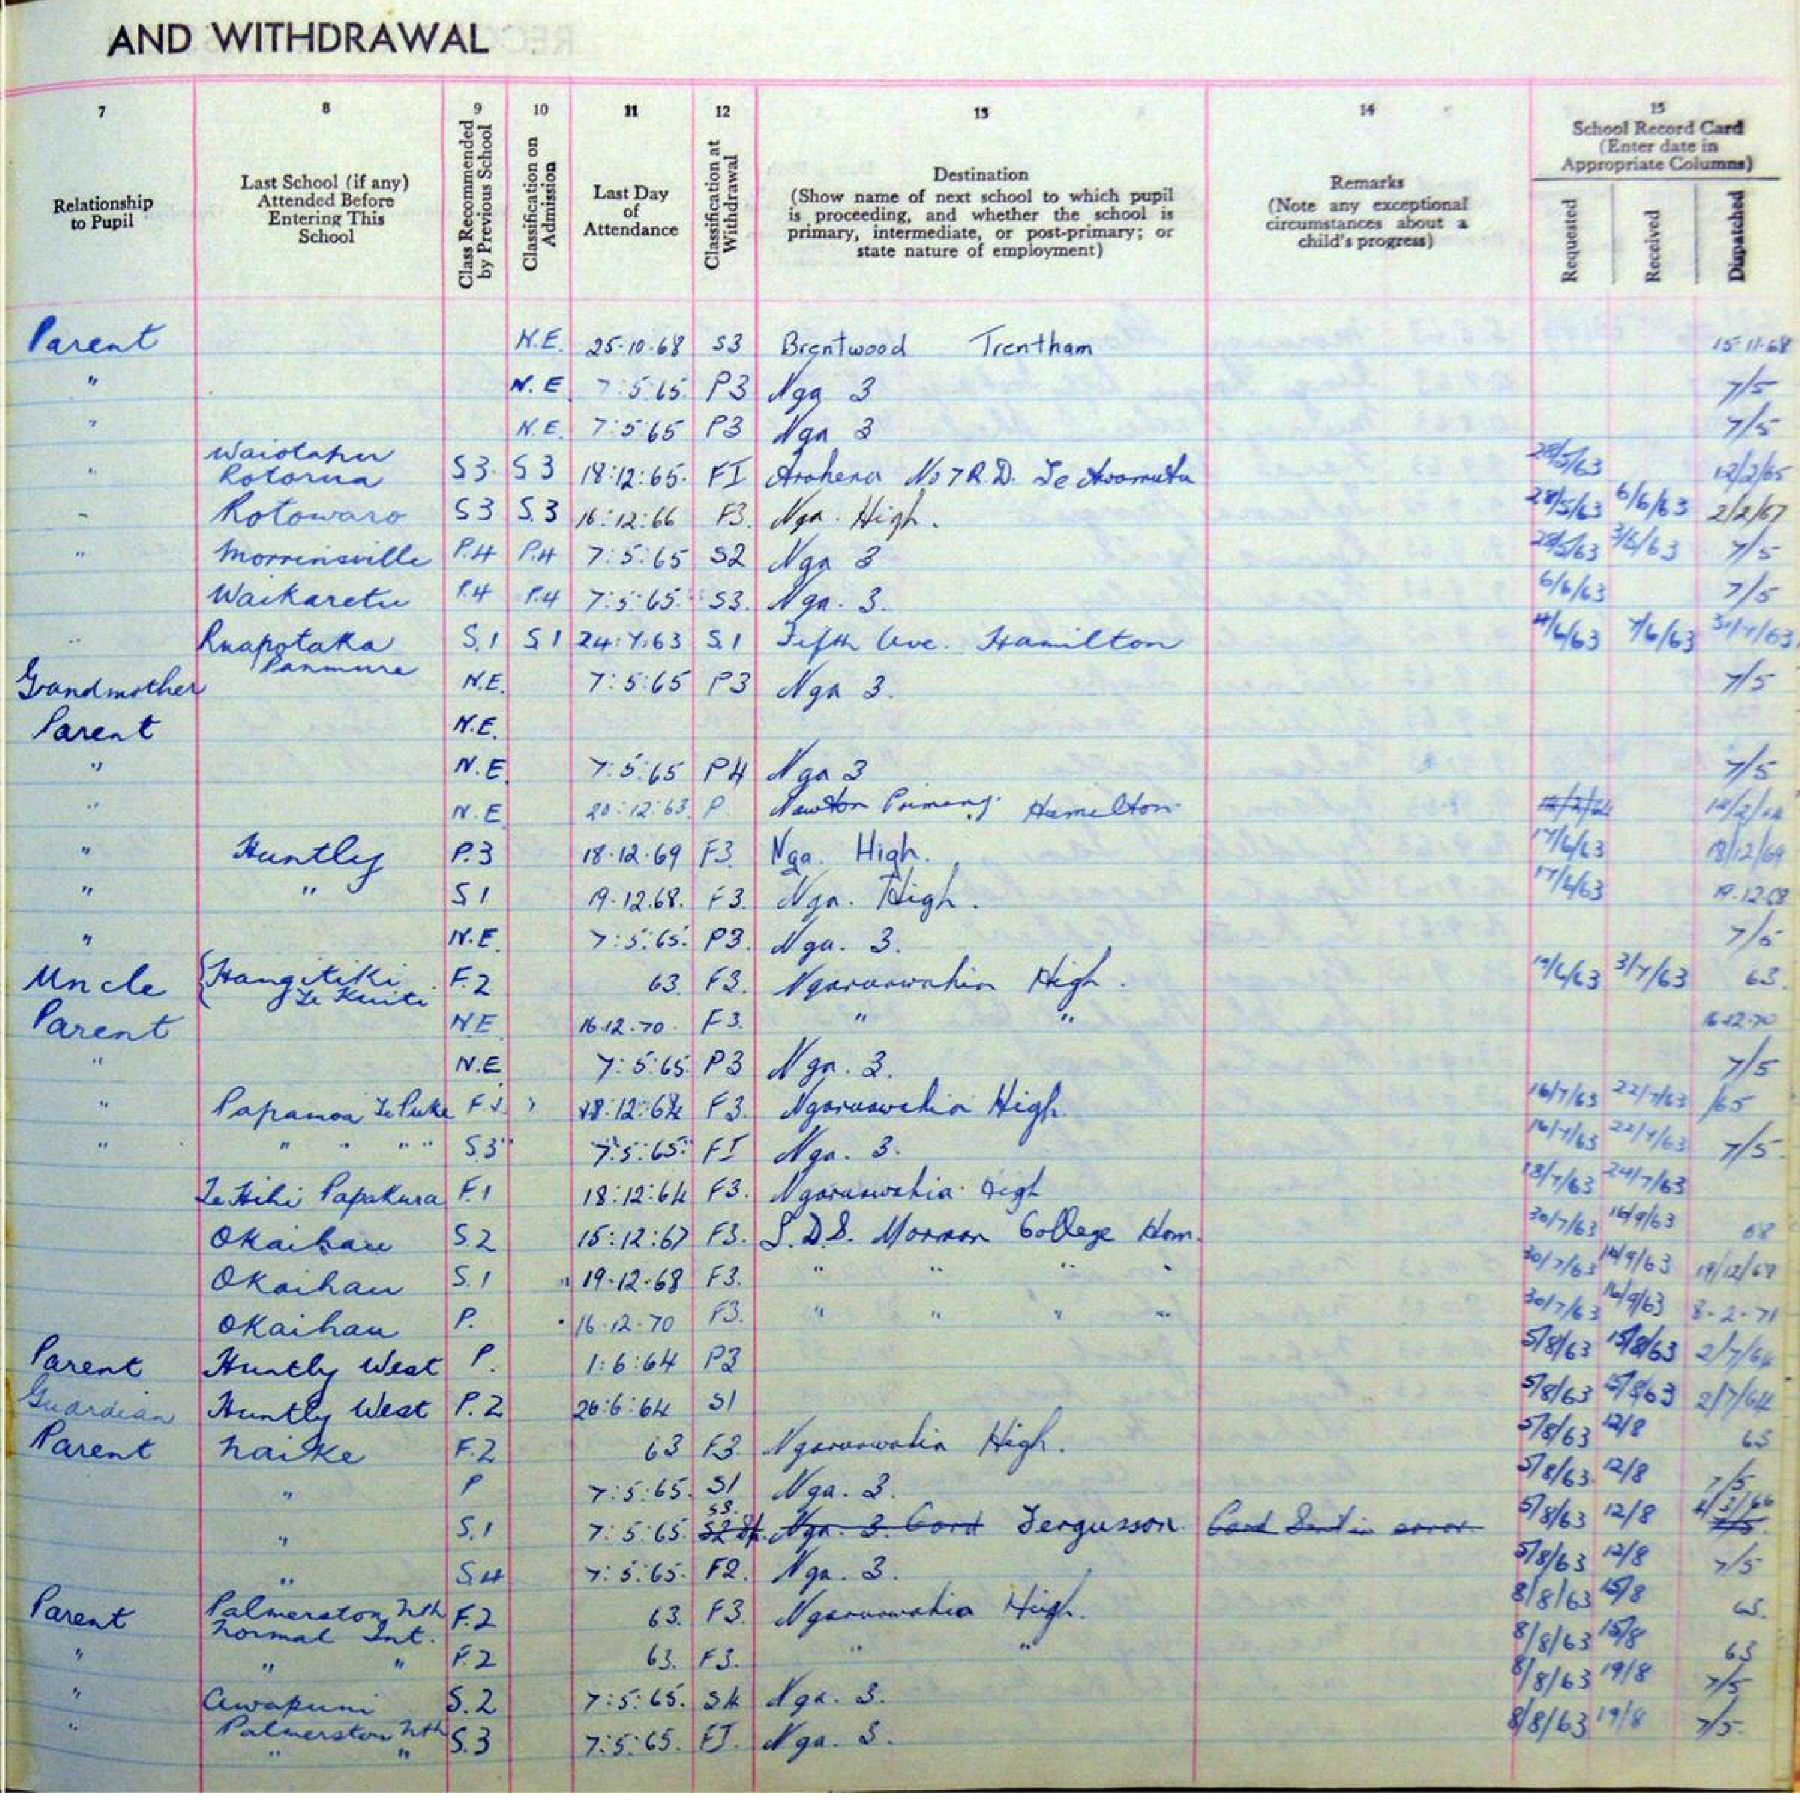 AND WITHDRAWAL
7 8 9 10 11 12 13 14 15
Relationship to Pupil
Last School (if any) Attended Before Entering This School
Class Recommended by Previous School
Classification on Admission
Last Day of Attendance
Classification at Withdrawal
Destination
(Show name of next school to which pupil is proceeding, and whether the school is primary, intermediate, or post-primary; or state nature of employment)
Remarks
(Note any exceptional circumstances about a child's progress)
School Record Card
(Enter date in Appropriate Columns)
Requested Received Dispatched
Parent N.E. 25·10·68 S3 Brentwood Trentham 15·11·68
" N.E. 7:5:65. P3 Nga 3 7/5
" N.E. 7:5:65 P3 Nga 3 7/5
Waiotapu
" Rotorua S3. S3 18:12:65. FI Arohena No 7 R.D. Te Awamutu 28/5/63 12/2/65
" Rotowaro S3 S.3 16:12:66 F3. Nga. High. 28/5/63 6/6/63 2/2/67
" Morrinsville P.4 P.4 7:5:65 S2 Nga 3 28/5/63 3/6/63 7/5
Waikaretu P.4 P.4 7:5:65. S3. Nga. 3. 6/6/63 7/5
" Ruapotaka S.1 S1 24:7:63 S.1 Fifth Ave. Hamilton 4/6/63 7/6/63 31/7/63
Panmure
Grandmother N.E. 7:5:65 P3 Nga 3. 7/5
Parent N.E.
" N.E. 7:5:65 P4 Nga 3 7/5
" N.E 20:12:63. P. Newton Primary. Hamilton.
" Huntly P.3 18·12·69 F3. Nga. High. 17/6/63 18/12/69
" " S1 19·12.68. F3. Nga. High. 17/6/63 19.12.68
" N.E. 7:5:65. P3. Nga. 3. 7/5
Uncle Hangitiki F.2 63. F3. Ngaruawahia High. 19/6/63 3/7/63 63.
Te Kuiti
Parent N.E 16.12.70. F3. " " 16.12.70
" N.E. 7:5:65 P3 Nga. 3. 7/5
" Papamoa Te Puke 18:12:64 F3. Ngaruawahia High. 16/7/63 22/7/63 /65
" " " " " S.3 7:5:65: FI Nga. 3. 16/7/63 22/7/63 7/5.
Te Hihi Papakura F.1 18:12:64 F3. Ngaruawahia High 18/7/63 24/7/63
Okaihau S.2 15:12:67 F3. L.D.S. Mormon College Ham. 30/7/63 16/9/63 68
Okaihau S.1 19·12·68 F3. " " " " 30/7/63 16/9/63 19/12/68
Okaihau P. 16·12·70 F3. " " " " 30/7/63 16/9/63 8-2-71
Parent Huntly West P. 1:6:64 P3 5/8/63 15/8/63 2/7/64
Guardian Huntly West P.2 26:6:64 S1 5/8/63 15/8/63 2/7/64
Parent Naike F.2 63 F3. Ngaruawahia High. 5/8/63 12/8 63
" P 7:5:65. S1 Nga. 3. 5/8/63. 12/8 7/5
" S.1 7:5:65. S3. S2 Nga. 3. Card Fergusson. Card Sent in error. 5/8/63 12/8 4/3/66 7/5
" S.4 7:5:65. F2. Nga. 3. 5/8/63 12/8 7/5
Parent Palmerston Nth F.2 63. F3. Ngaruawahia High. 8/8/63 15/8 63.
Normal Int.
" " " F.2 63. F3. " " 8/8/63 15/8 63
" Awapuni S.2 7:5:65. S4 Nga. 3. 8/8/63 19/8 7/5
" Palmerston Nth S.3 7:5:65. FI. Nga. 3. 8/8/63 19/8 7/5.
" "